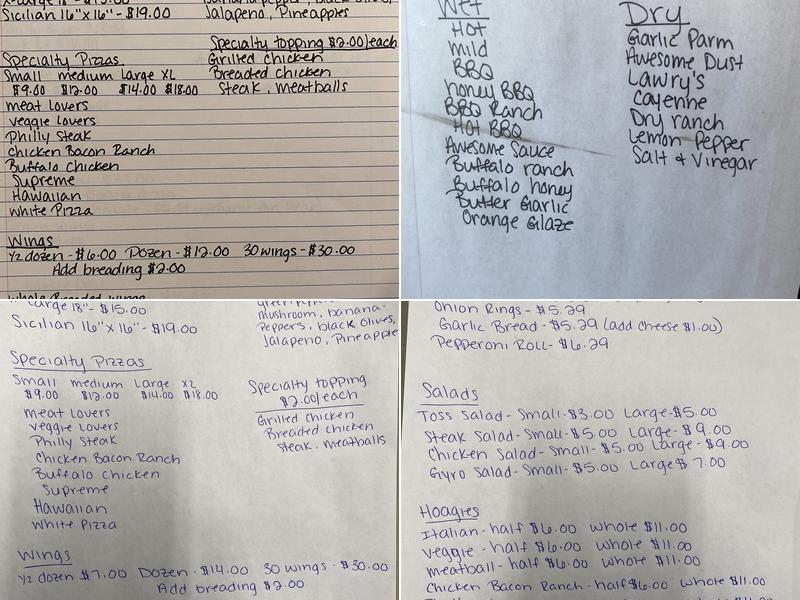 Sicilian 16"x 16" - $19.00
Jalapeno, Pineapples
Specialty topping $2.00/each
Grilled chicken
Breaded chicken
Steak, meatballs
Specialty Pizzas
Small medium Large XL
$9.00 $12.00 $14.00 $18.00
meat Lovers
veggie Lovers
Philly Steak
Chicken Bacon Ranch
Buffalo Chicken
Supreme
Hawaiian
White Pizza
Wings
1/2 dozen - $6.00 Dozen - $12.00 30 wings - $30.00
Add breading $2.00
Wet
Hot
Mild
BBQ
honey BBQ
BBQ Ranch
Hot BBQ
Awesome Sauce
Buffalo ranch
Buffalo honey
Butter Garlic
Orange Glaze
Dry
Garlic Parm
Awesome Dust
Lawry's
Cayenne
Dry ranch
Lemon Pepper
Salt & Vinegar
Large 18" - $15.00
Sicilian 16"x 16" - $19.00
mushroom, banana-
Peppers, black Olives,
Jalapeno, Pineapple
Specialty Pizzas
Small medium Large XL
$9.00 $12.00 $14.00 $18.00
meat Lovers
veggie Lovers
Philly Steak
Chicken Bacon Ranch
Buffalo Chicken
Supreme
Hawaiian
White Pizza
Specialty topping
$2.00/each
Grilled chicken
Breaded chicken
Steak, meatballs
Wings
1/2 dozen $7.00 Dozen - $14.00 30 wings - $30.00
Add breading $2.00
Onion Rings - $5.29
Garlic Bread - $5.29 (add cheese $1.00)
Pepperoni Roll - $6.29
Salads
Toss Salad - Small - $3.00 Large - $5.00
Steak Salad - Small - $5.00 Large - $9.00
Chicken Salad - Small - $5.00 Large - $9.00
Gyro Salad - Small - $5.00 Large $7.00
Hoagies
Italian - half $6.00 whole $11.00
veggie - half $6.00 whole $11.00
meatball - half $6.00 whole $11.00
Chicken Bacon Ranch - half $6.00 whole $11.00